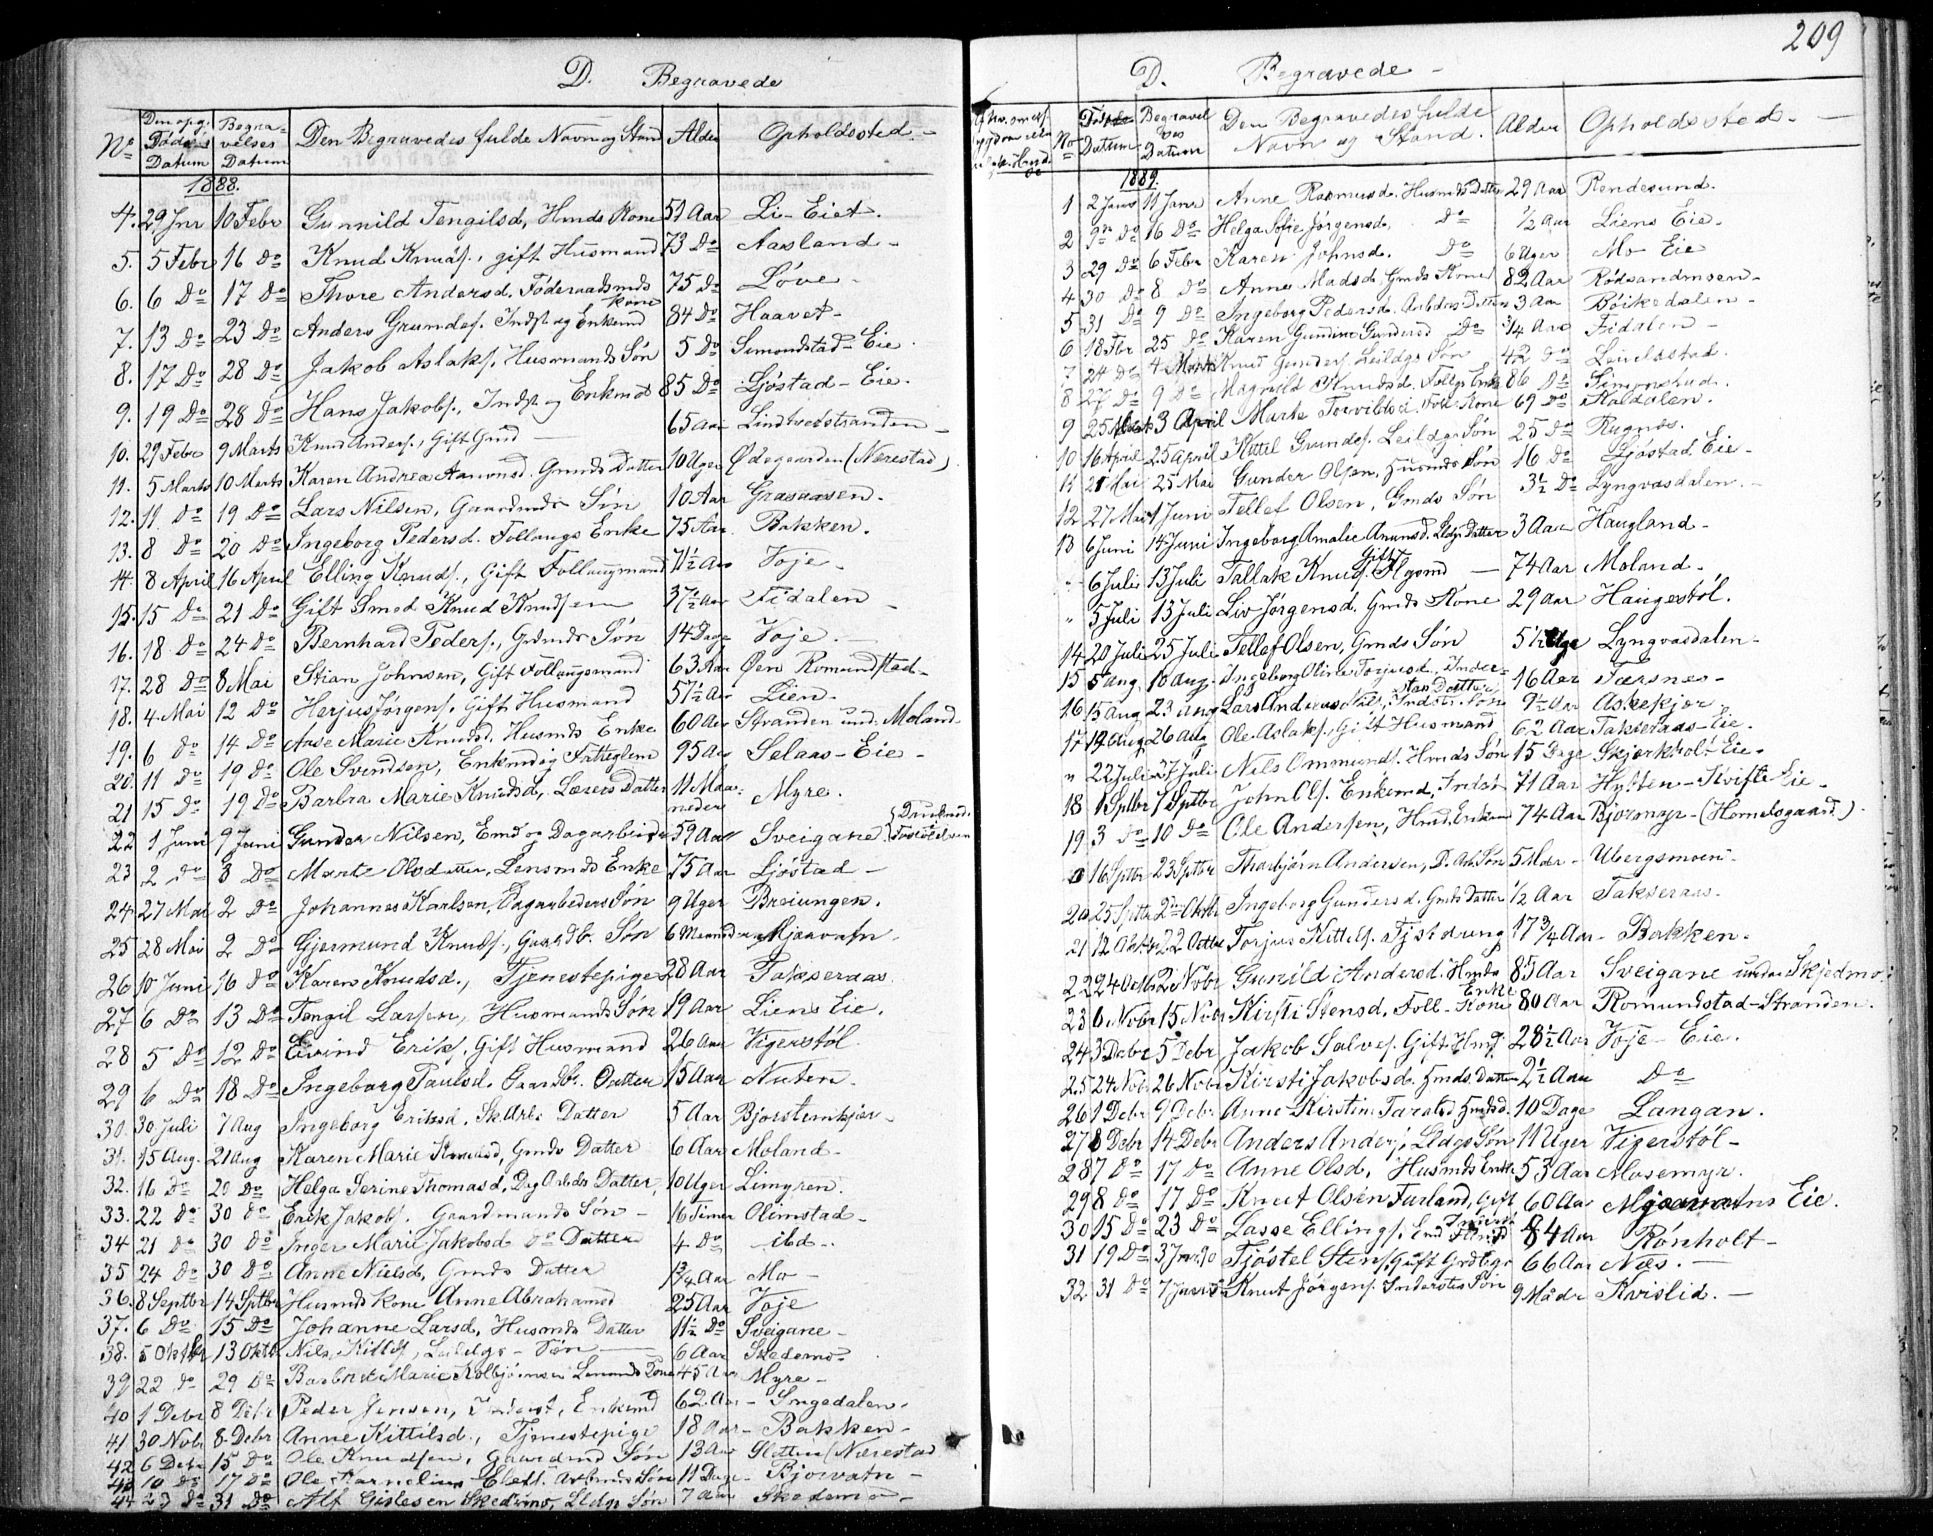 D. Begravede
No Den opg. Døds Datum Begravelses Datum Den Begravedes fulde Navn og Stand Alder Opholdssted
1888.
4. 29 Jnr 10 Febr Gunnild Tengilsd, Hmds Kone 59 Aar Li-Eiet.
5. 5 Febr 16 Do Knud Knuds., gift Husmand 73 Do Aasland
6. 6 Do 17 Do Thore Andersd. Føderaadsmds kone 75 Do Løve
7. 13 Do 23 Do Anders Grundes. Indst og Enkemd 84 Do Haavet
8. 17 Do 28 Do Jakob Aslaks. Husmands Søn 5 Do Simonstad-Eie
9. 19 Do 28 Do Hans Jakobs., Indst og Enkmd 85 Do Ljøstad-Eie.
10. 29 Febr 9 Marts Knud Anders., Gift Gmd 65 Aar Lindtveitstranden
11. 5 Marts 10 Marts Karen Andrea Aanonsd. Gmds Datter 10 Uger Ødegaarden (Nærestad)
12. 11 Do 19 Do Lars Nilsen, Gaardmds Søn 10 Aar Grasaasen.
13. 8 Do 20 Do Ingeborg Pedersd. Follaugs Enke 75 Aar Bakken.
14. 8 April 16 April Elling Knuds., Gift Follaugmand 71½ Aar Voje
15. 15 Do 21 Do Gift Smed Knud Knudsen 37½ Aar Fidalen
16. 18 Do 24 Do Bernhard Peders., Grdmds Søn 14 Dage Voje.
17. 28 Do 8 Mai Stian Johnsen, Gift Follaugsmand 63 Aar Øen Romundstad
18. 4 Mai 12 Do Herjus Jørgens. Gift Husmand 57½ Aar Lien
19. 6 Do 14 Do Aase Marie Knudsd. Husmds Enke 60 Aar Stranden und. Moland
20. 11 Do 19 Do Ole Svendsen, Enkemd og Fattiglem 95 Aar Selaas-Eie
21 15 Do 19 Do Barbra Marie Knudsd, Læsers Datter 11 Maaneder Myre.
22 1 Juni 9 Juni Gunder Nilsen, Emd og Dagarbeider 59 Aar Sveigane
23 2 Do 3 Do Marte Olsdatter, Lensmds Enke 75 Aar Ljøstad
24 27 Mai 2 Do Johannes Karlsen, Dagarbeiders Søn 9 Uger Breiungen.
25 28 Mai 2 Do Gjermund Knuds., Gaardb. Søn 6 Maaned Mjaavatn
26 10 Juni 16 Do Karen Knudsd., Tjenestepige 28 Aar Takseraas
27 6 Do 13 Do Tengil Larsen, Husmands Søn 19 Aar Liens Eie.
28 5 Do 12 Do Eivind Eriks. Gift Husmand 26 Aar Vigerstøl
29 6 Do 18 Do Ingeborg Paulsd. Gaardbr. Datter 15 Aar Nuten
30. 30 Juli 7 Aug Ingeborg Eriksd, Sk Arb. Datter 5 Aar Bjorstemkjær
31. 15 Aug. 21 Aug Karen Marie Knudsd, Gmds Datter 6 Aar Moland
32. 16 Do 20 Do Helga Serine Thomasd, Dag Arbds Datter, 10 Uger Limyren.
33. 22 Do 30 Do Erik Jakobs. Gaardmands Søn 16 Timer Olimstad
34 21 Do 30 Do Inger Marie Jakobsd Do Datter 4 Do ibd
35 24 Do 30 Do Anne Nielsd, Gmds Datter 1¾ Aar Mo
36. 8 Septbr 14 Sptbr Husmds kone Anne Abrahamsd 25 Aar Voje
37. 6 Do 15 Do Johanne Larsd, Husmds Datter 11½ Do Sveigane
38. 5 Oktbr 13 Oktb Nils Kittils, Leildgs Søn 6 Aar Skedemo
39 22 Do 29 Do Marie Kolbjørnsen Kone 45 Aar Myre
40 1 Debr 8 Debr Peder Jensen, Inderst, Enkemd 62 Aar Ingedalen
41 30 Novbr 8 Debr Anne Kittilsd., Tjenestepige 18 Aar Bakken
42 6 Debr 15 Do Ole Knudsen, Gaardmd Søn 13 Aar Sletten (Nærestad
43 10 Do 17 Do Ole Kornelius Arbmds Søn 11 Dage Bjorvatn
44 23 Do 31 Do Alf Gislesen Skedemo, Lldgs Søn 7 Aar Skedemo
209
D. Begravede
No Døds Datum Begravelses Datum Den Begravedes fulde Navn og Stand. Alder Opholdssted
1889.
1 2 Janr 11 Janr Anne Rasmusd. Husmds Datter 29 Aar Rendesund.
2 9 Do 16 Do Helga Sofie Jørgensd, Do ½ Aar Liens Eie
3 29 Do 6 Febr Karen Johnsd. Do 6 Uger Mo Eie
4 30 Do 8 Do Anne Madsd. Gmds Kone 82 Aar Rødsandmoen
5 31 Do 9 Do Ingeborg Pedersd. Arbdrs Datter 3 Aar Bøikedalen
6 18 Fbr 25 Do Karen Gundine Gundersd Do ¾ Aar Fidalen
7 24 Do 4 Marts Knud Gunders Leildgs Søn 42 Do
8 27 Do 9 Do Magnild Knudsd. Follgs Enke 86 Do Simonstad.
9 25 Marts 3 April Marte Torvildsd. Foll. Kone 69 Do Kaldalen.
10 16 April 25 April Kittil Grundes. Leildgs Søn 25 Do Rugnes.
11 21 Mai 25 Mai Gunder Olsen, Husmds Søn 16 Do Ljøstad Eie
12 27 Mai 1 Juni Tellef Olsen, Gmds Søn 3½ Do Lyngvasdalen.
13 6 Juni 14 Juni Ingeborg Amalie Anunsd. Lldgs Datter 3 Aar Haugland
" 6 Juli 13 Juli Tallak Knuds. Gift Flgsmd 74 Aar Moland
" 5 Juli 13 Juli Liv Jørgensd. Gmds Kone 29 Aar Haugestøl.
14 20 Juli 25 Juli Tellef Olsen, Gmds Søn 5½ Uge Lyngvasdalen
15 5 Aug. 10 Aug. Ingeborg Oline Torjusd. Inderstes Datter 16 Aar Tærsnes
16 15 Aug 23 Aug Lars Andreas Nils., Indst. Søn 9½ Aar Askekjær
17 19 Aug 26 Aug Ole Aslaks. Gift Husmand 62 Aar Takseraas-Eie.
" 22 Juli 27 Juli Nils Ommunds. Hmds Søn 15 Dage Skjerkholt-Eie
18 1 Sptbr 7 Sptbr John Ols. Enkemd, Indst 71 Aar Hylten-Kvifte Eie
19 3 Do 10 Do Ole Andersen, Hmd, Enkem 74 Aar Bjormyr-(Hornelsgaard)
" 16 Sptbr 23 Sptbr Thorbjørn Andersen, D. Arb Søn 5 Mdr Ubergsmoen
20 25 Sptbr 2den Oktbr Ingeborg Gundersd. Gmds Datter ½ Aar Takseraas.
21 12 Oktbr 22 Octbr Torjus Kittels. Tjstdreng 17¾ Aar Bakken
22 24 Octbr 2 Novbr Gunild Andersd. Hmds Enke 85 Aar Sveigane under Skjedmo
23 6 Novbr 15 Novbr Kirsti Stensd, Foll-Kone 80 Aar Romundstad-Stranden
24 3 Debr 5 Debr Jakob Salves. Gift Hmd 28½ Aar Voje Eie.
25 24 Nov 26 Novbr Kirsti Jakobsd. Hmds. Datter 2½ Aar Do
26 1 Debr 9 Debr Anne Kirstine Taraldsd Hmdsd. 10 Dage Langan.
27 8 Debr 14 Debr Anders Anders., Lldgs Søn 11 Uger Vigerstøl
28 7 Do 17 Do Anne Olsd, Husmds Enke 53 Aar Mosemyr.
29 8 Do 17 Do Knut Olsen Furland, Gift 60 Aar Mjaavatns Eie.
30 15 Do 23 Do Lasse Ellings, Emd 84 Aar Rønholt
31 19 Do 3 Jnr 90 Tjøstel Stens, Gift Grdbgr 66 Aar Næs.
32. 31 Do 7 Janr Do Knut Jørgens. Inderstes Søn 9 Mådr Kvislid.